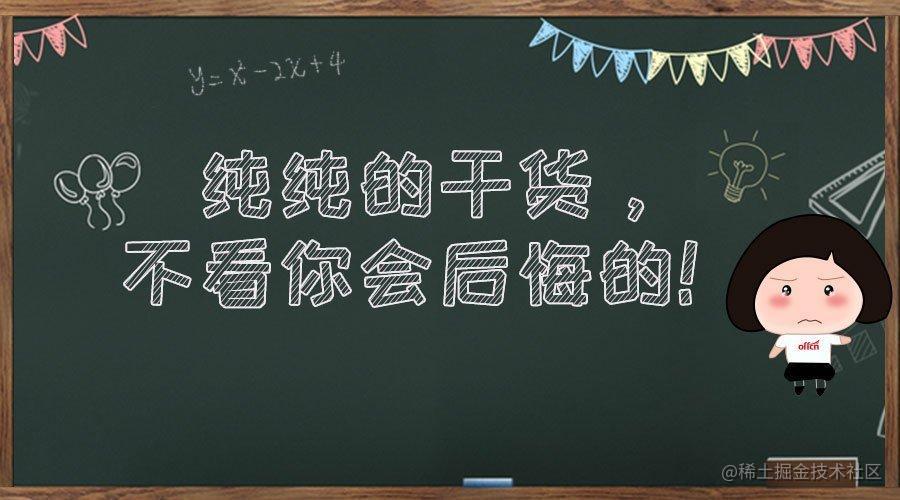 y=x²-2x+4
纯纯的干货，
不看你会后悔的!
offcn
@稀土掘金技术社区